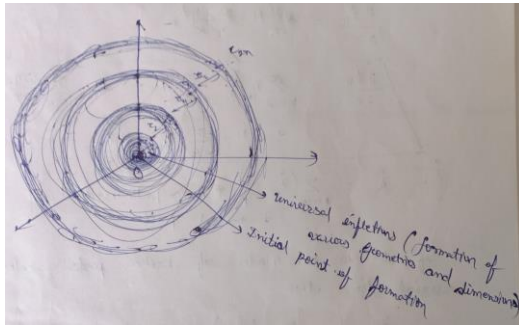 universal inflections (formation of
various geometries and dimensions)
Initial point of formation